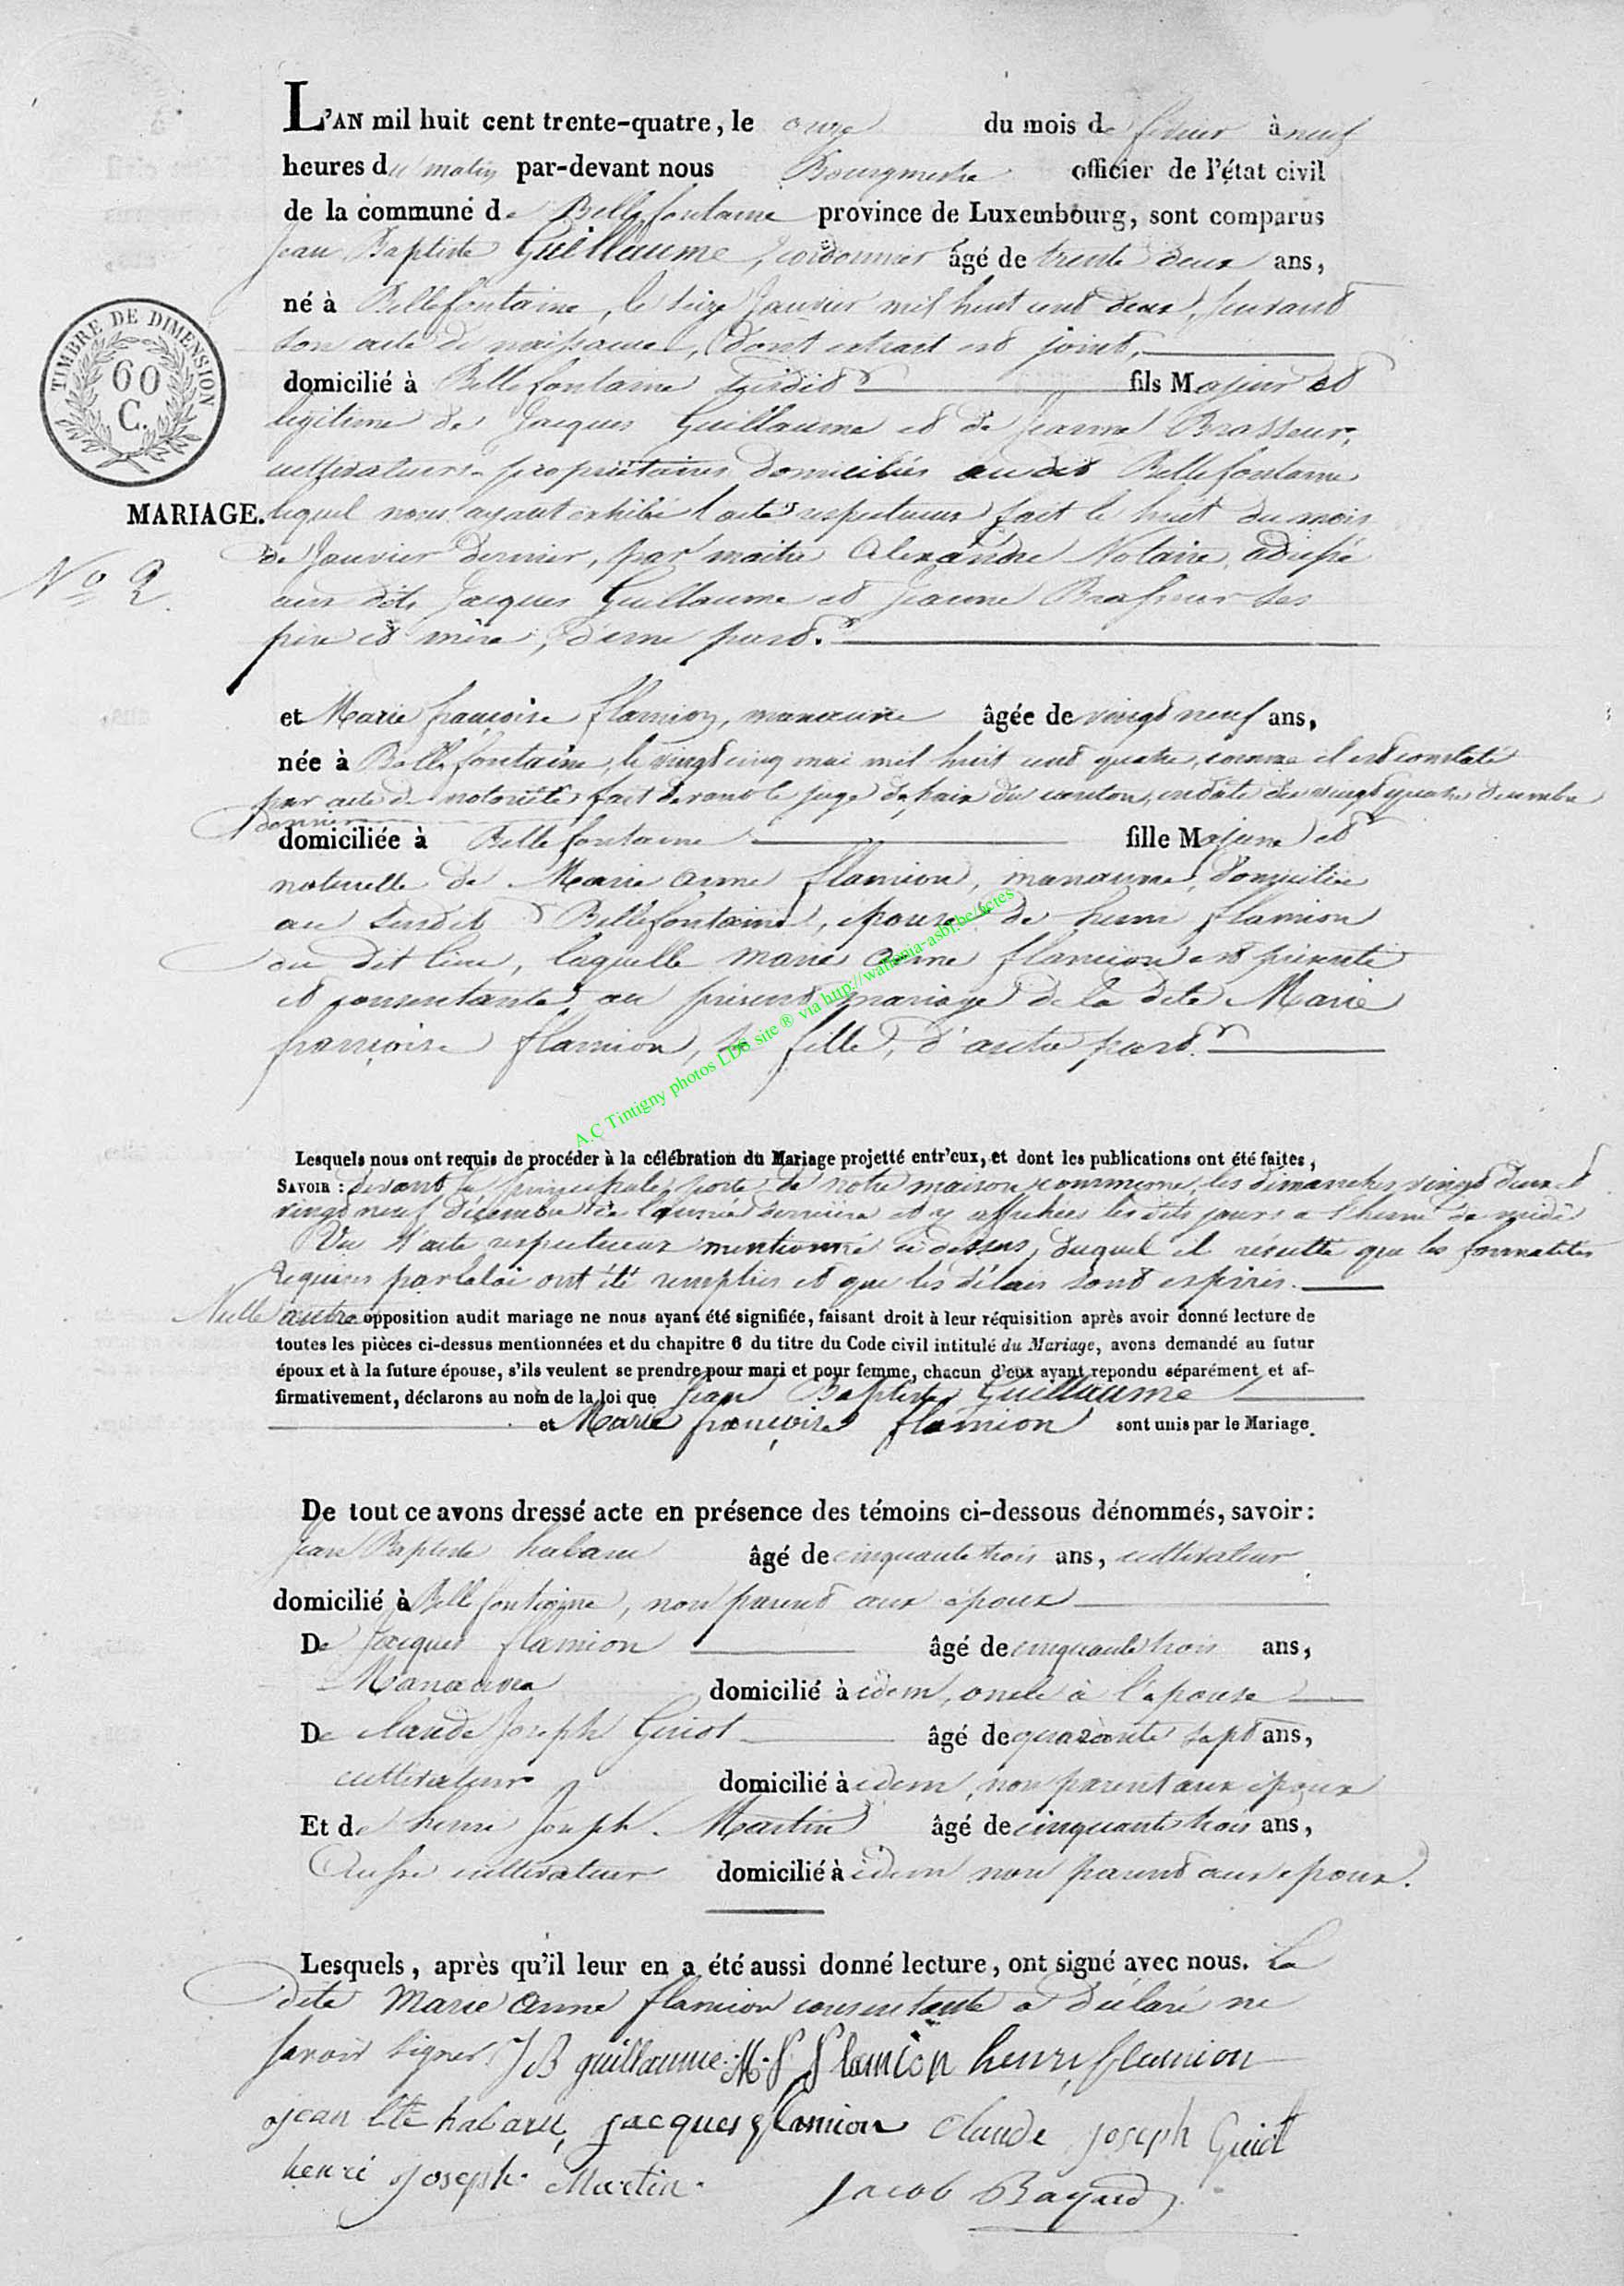 L'AN mil huit cent trente-quatre, le onze du mois de février à neuf
heures du matin par-devant nous Bourgmestre officier de l'état civil
de la commune de Bellefontaine province de Luxembourg, sont comparus
Jean Baptiste Guillaume, cordonnier âgé de trente deux ans,
né à Bellefontaine, le seize Janvier mil huit cent deux, suivant
son acte de naissance, dont extrait est joint,
domicilié à Bellefontaine susdit fils Majeur et
légitime de Jacques Guillaume et de Jeanne Brasseur,
cultivateurs-propriétaires domiciliés au dit Bellefontaine
lequel nous ayant exhibé l'acte respectueux fait le huit du mois
de Janvier dernier, par maitre Alexandre Notaire, adressé
aux dits Jacques Guillaume et Jeanne Brasseur ses
père et mère, d'une part.
TIMBRE DE DIMENSION
60
C.
MARIAGE.
No 2
et Marie françoise flamion, manœuvre âgée de vingt neuf ans,
née à Bellefontaine, le vingt cinq mai mil huit cent quatre, comme il est constaté
par acte de notoriété fait devant le juge de paix du canton, en date du vingt quatre décembre
dernier
domiciliée à Bellefontaine fille Majeure et
naturelle de Marie anne flamion, manœuvre, domiciliée
au susdit Bellefontaine, épouse de henri flamion
au dit lieu, laquelle marie anne flamion est présente
et consentante au présent mariage de la dite Marie
françoise flamion, sa fille, d'autre part.
A.C Tintigny photos LDS site ® via http://wallonia-asbl.be/actes
Lesquels nous ont requis de procéder à la célébration du Mariage projetté entr'eux, et dont les publications ont été faites,
SAVOIR : devant la principale porte de notre maison commune, les dimanches vingt deux et
vingt neuf décembre de l'année dernière et y affichées les dits jours à l'heure de midi
Vu l'acte respectueux mentionné ci dessus, duquel il résulte que les formalités
requises par la loi ont été remplies et que les délais sont expirés.
Nulle autre opposition audit mariage ne nous ayant été signifiée, faisant droit à leur réquisition après avoir donné lecture de
toutes les pièces ci-dessus mentionnées et du chapitre 6 du titre du Code civil intitulé du Mariage, avons demandé au futur
époux et à la future épouse, s'ils veulent se prendre pour mari et pour femme, chacun d'eux ayant repondu séparément et af-
firmativement, déclarons au nom de la loi que Jean Baptiste Guillaume
et Marie françoise flamion sont unis par le Mariage.
De tout ce avons dressé acte en présence des témoins ci-dessous dénommés, savoir :
Jean Baptiste habaru âgé de cinquante trois ans, cultivateur
domicilié à Bellefontaine, non parent aux époux
De Jacques flamion âgé de cinquante trois ans,
Manœuvre domicilié à idem, oncle à l'épouse
De claude Joseph Guiot âgé de quarante sept ans,
cultivateur domicilié à idem, non parent aux époux
Et de henri Joseph Martin âgé de cinquante trois ans,
Aussi cultivateur domicilié à idem non parent aux epoux.
Lesquels, après qu'il leur en a été aussi donné lecture, ont signé avec nous. La
dite Marie anne flamion consentante a déclaré ne
savoir signer. JB guillaume. M. f flamion henri flamion
jean bte habaru, jacques flamion claude joseph Guiot
henri joseph Martin. Jacob Bayard